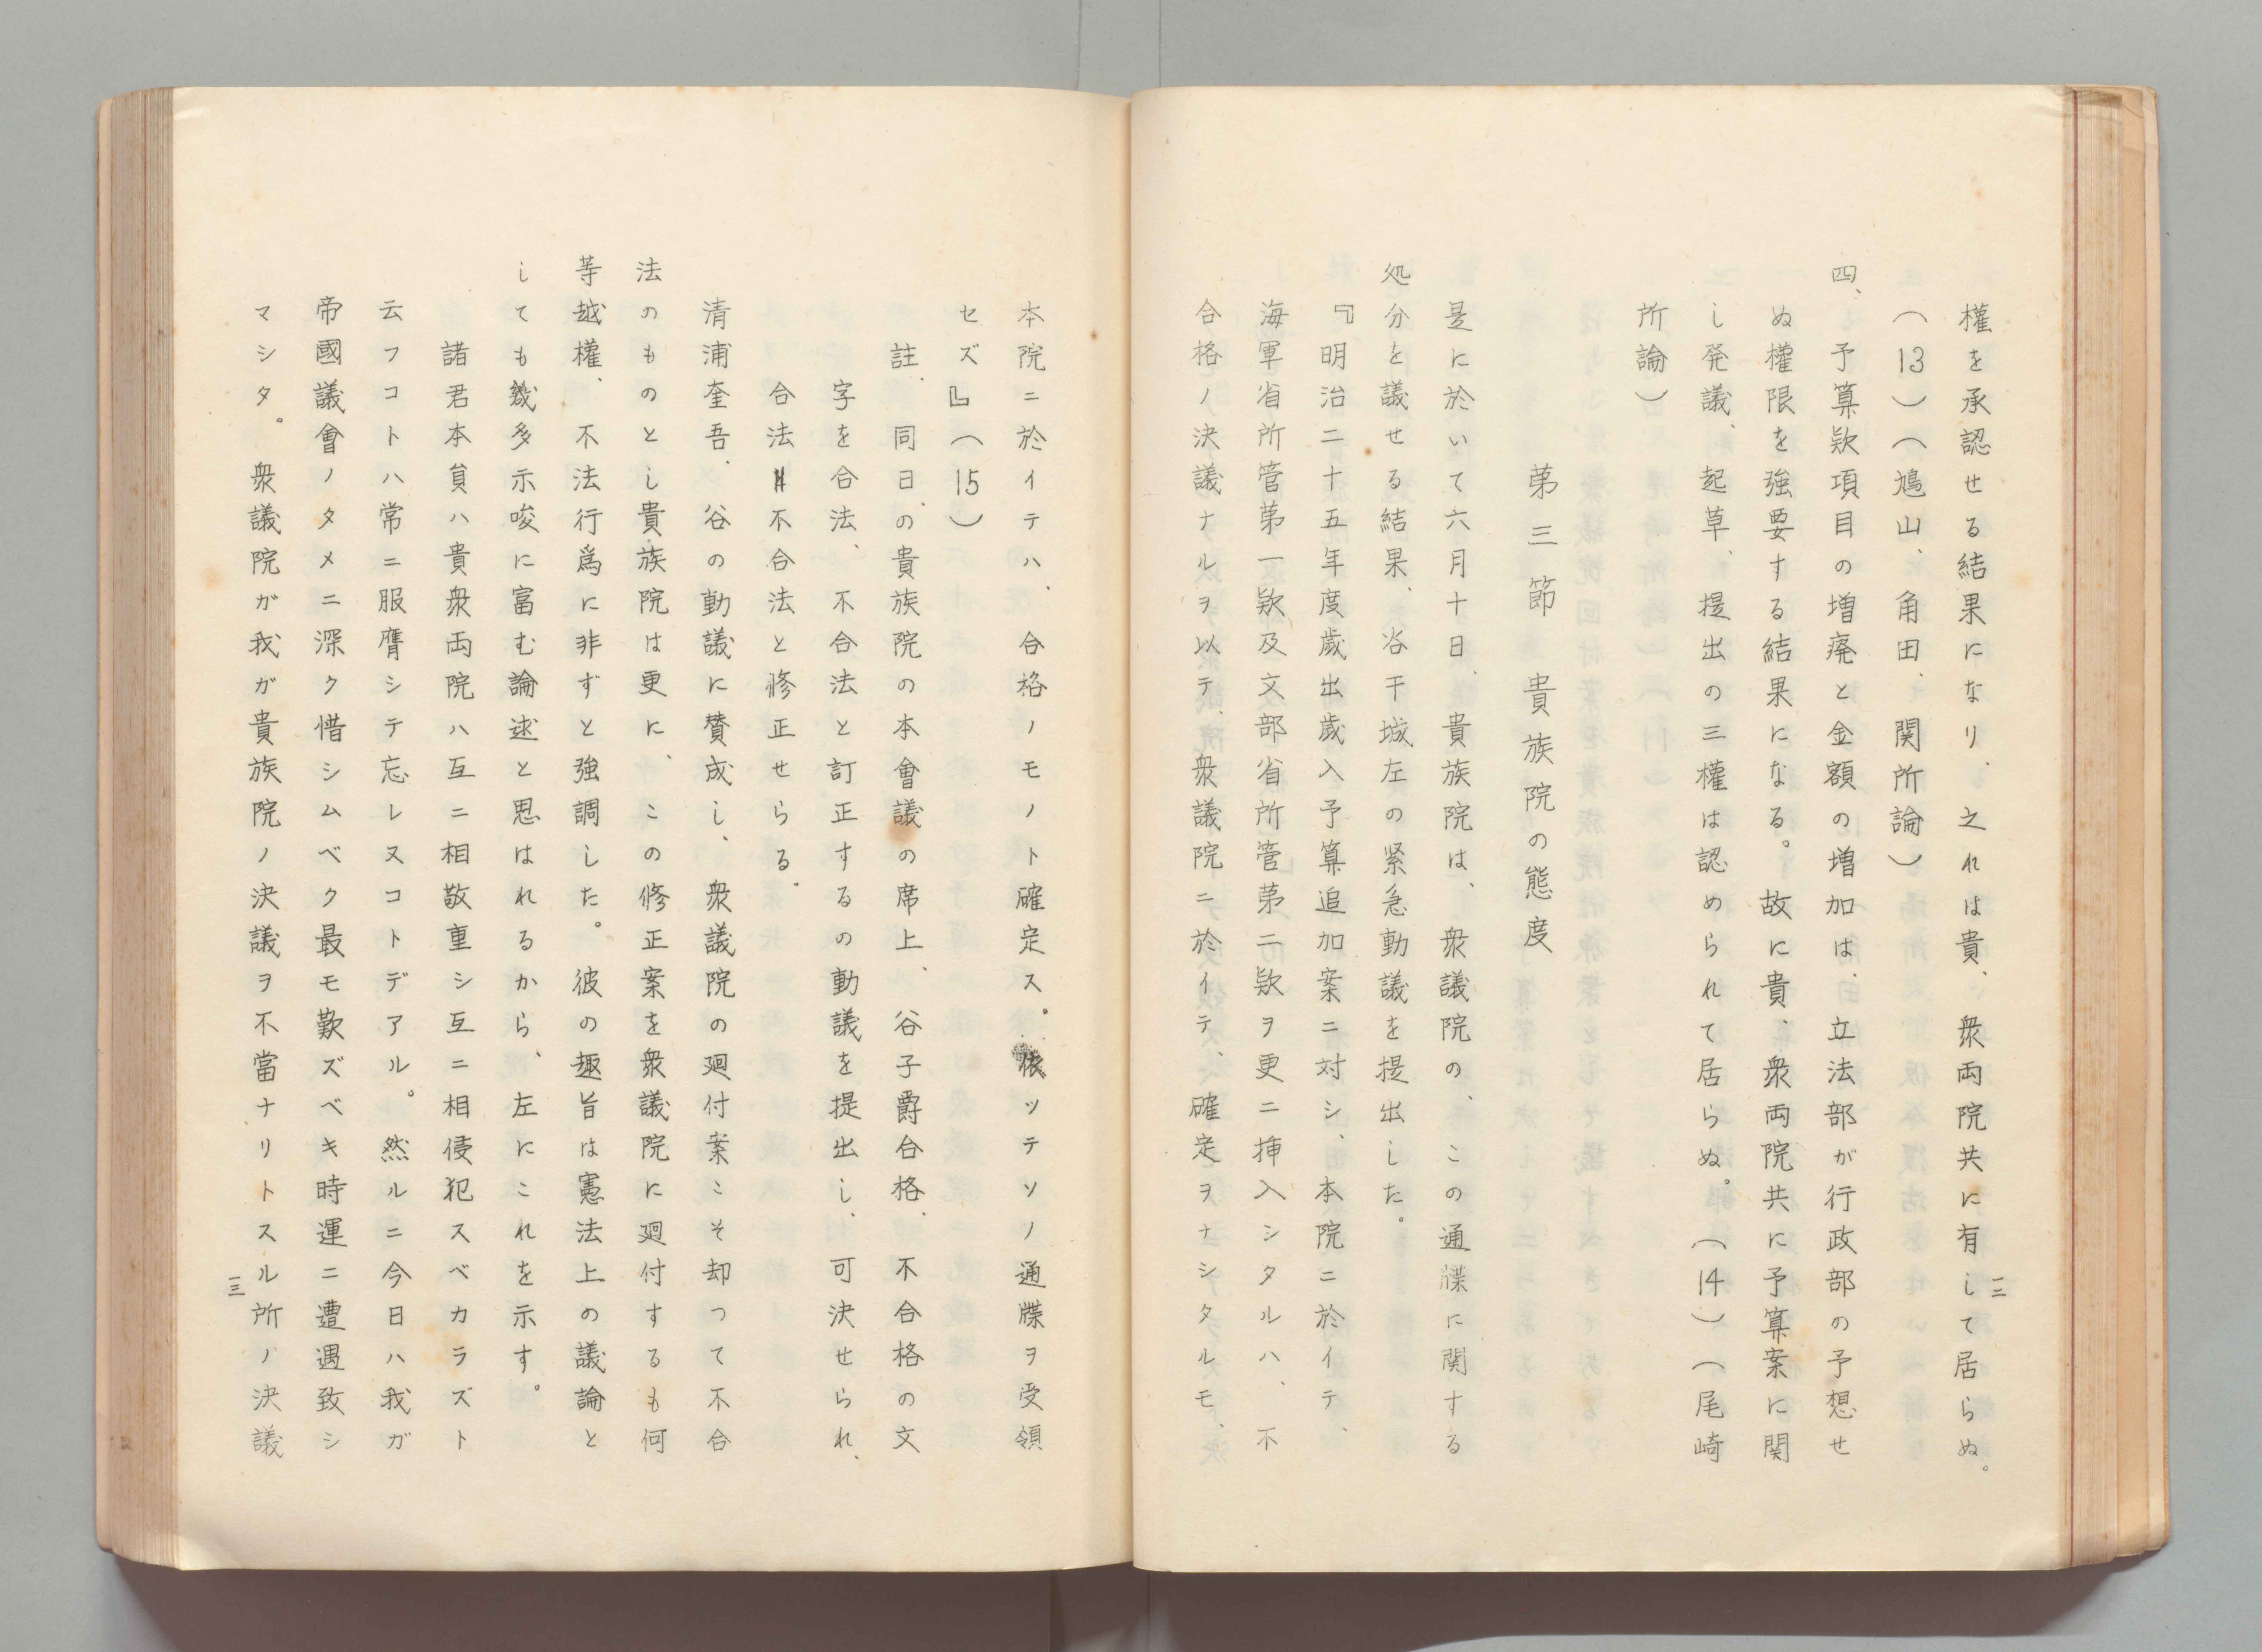 權を承認せる結果になり、之れは貴、衆両院共に有して居らぬ。
（13）（鳩山、角田、関所論）
四、予算欵項目の増廃と金額の増加は、立法部が行政部の予想せ
ぬ權限を強要する結果になる。故に貴、衆両院共に予算案に関
し発議、起草、提出の三權は認められて居らぬ。（14）（尾崎
所論）
第三節　貴族院の態度
是に於いて六月十日、貴族院は、衆議院の、この通牒に関する
処分を議せる結果、谷干城左の緊急動議を提出した。
『明治二十五年度歳出歳入予算追加案ニ対シ、本院ニ於イテ、
海軍省所管第一欵及文部省所管第二欵ヲ更ニ挿入シタルハ、不
合格ノ決議ナルヲ以テ、衆議院ニ於イテ、確定ヲナシタルモ、
二
本院ニ於イテハ、合格ノモノト確定ス。依ツテソノ通牒ヲ受領
セズ』（15）
註、同日、の貴族院の本會議の席上、谷子爵合格、不合格の文
字を合法、不合法と訂正するの動議を提出し、可決せられ、
合法 不合法と修正せらる。
清浦奎吾、谷の動議に賛成し、衆議院の廻付案こそ却つて不合
法のものとし貴族院は更に、この修正案を衆議院に廻付するも何
等越權、不法行爲に非ずと強調した。彼の趣旨は憲法上の議論と
しても幾多示唆に富む論述と思はれるから、左にこれを示す。
諸君本員ハ貴衆両院ハ互ニ相敬重シ互ニ相侵犯スベカラズト
云フコトハ常ニ服膺シテ忘レヌコトデアル。然ルニ今日ハ我ガ
帝國議會ノタメニ深ク惜シムベク最モ歎ズベキ時運ニ遭遇致シ
マシタ。衆議院ガ我ガ貴族院ノ決議ヲ不當ナリトスル所ノ決議
三